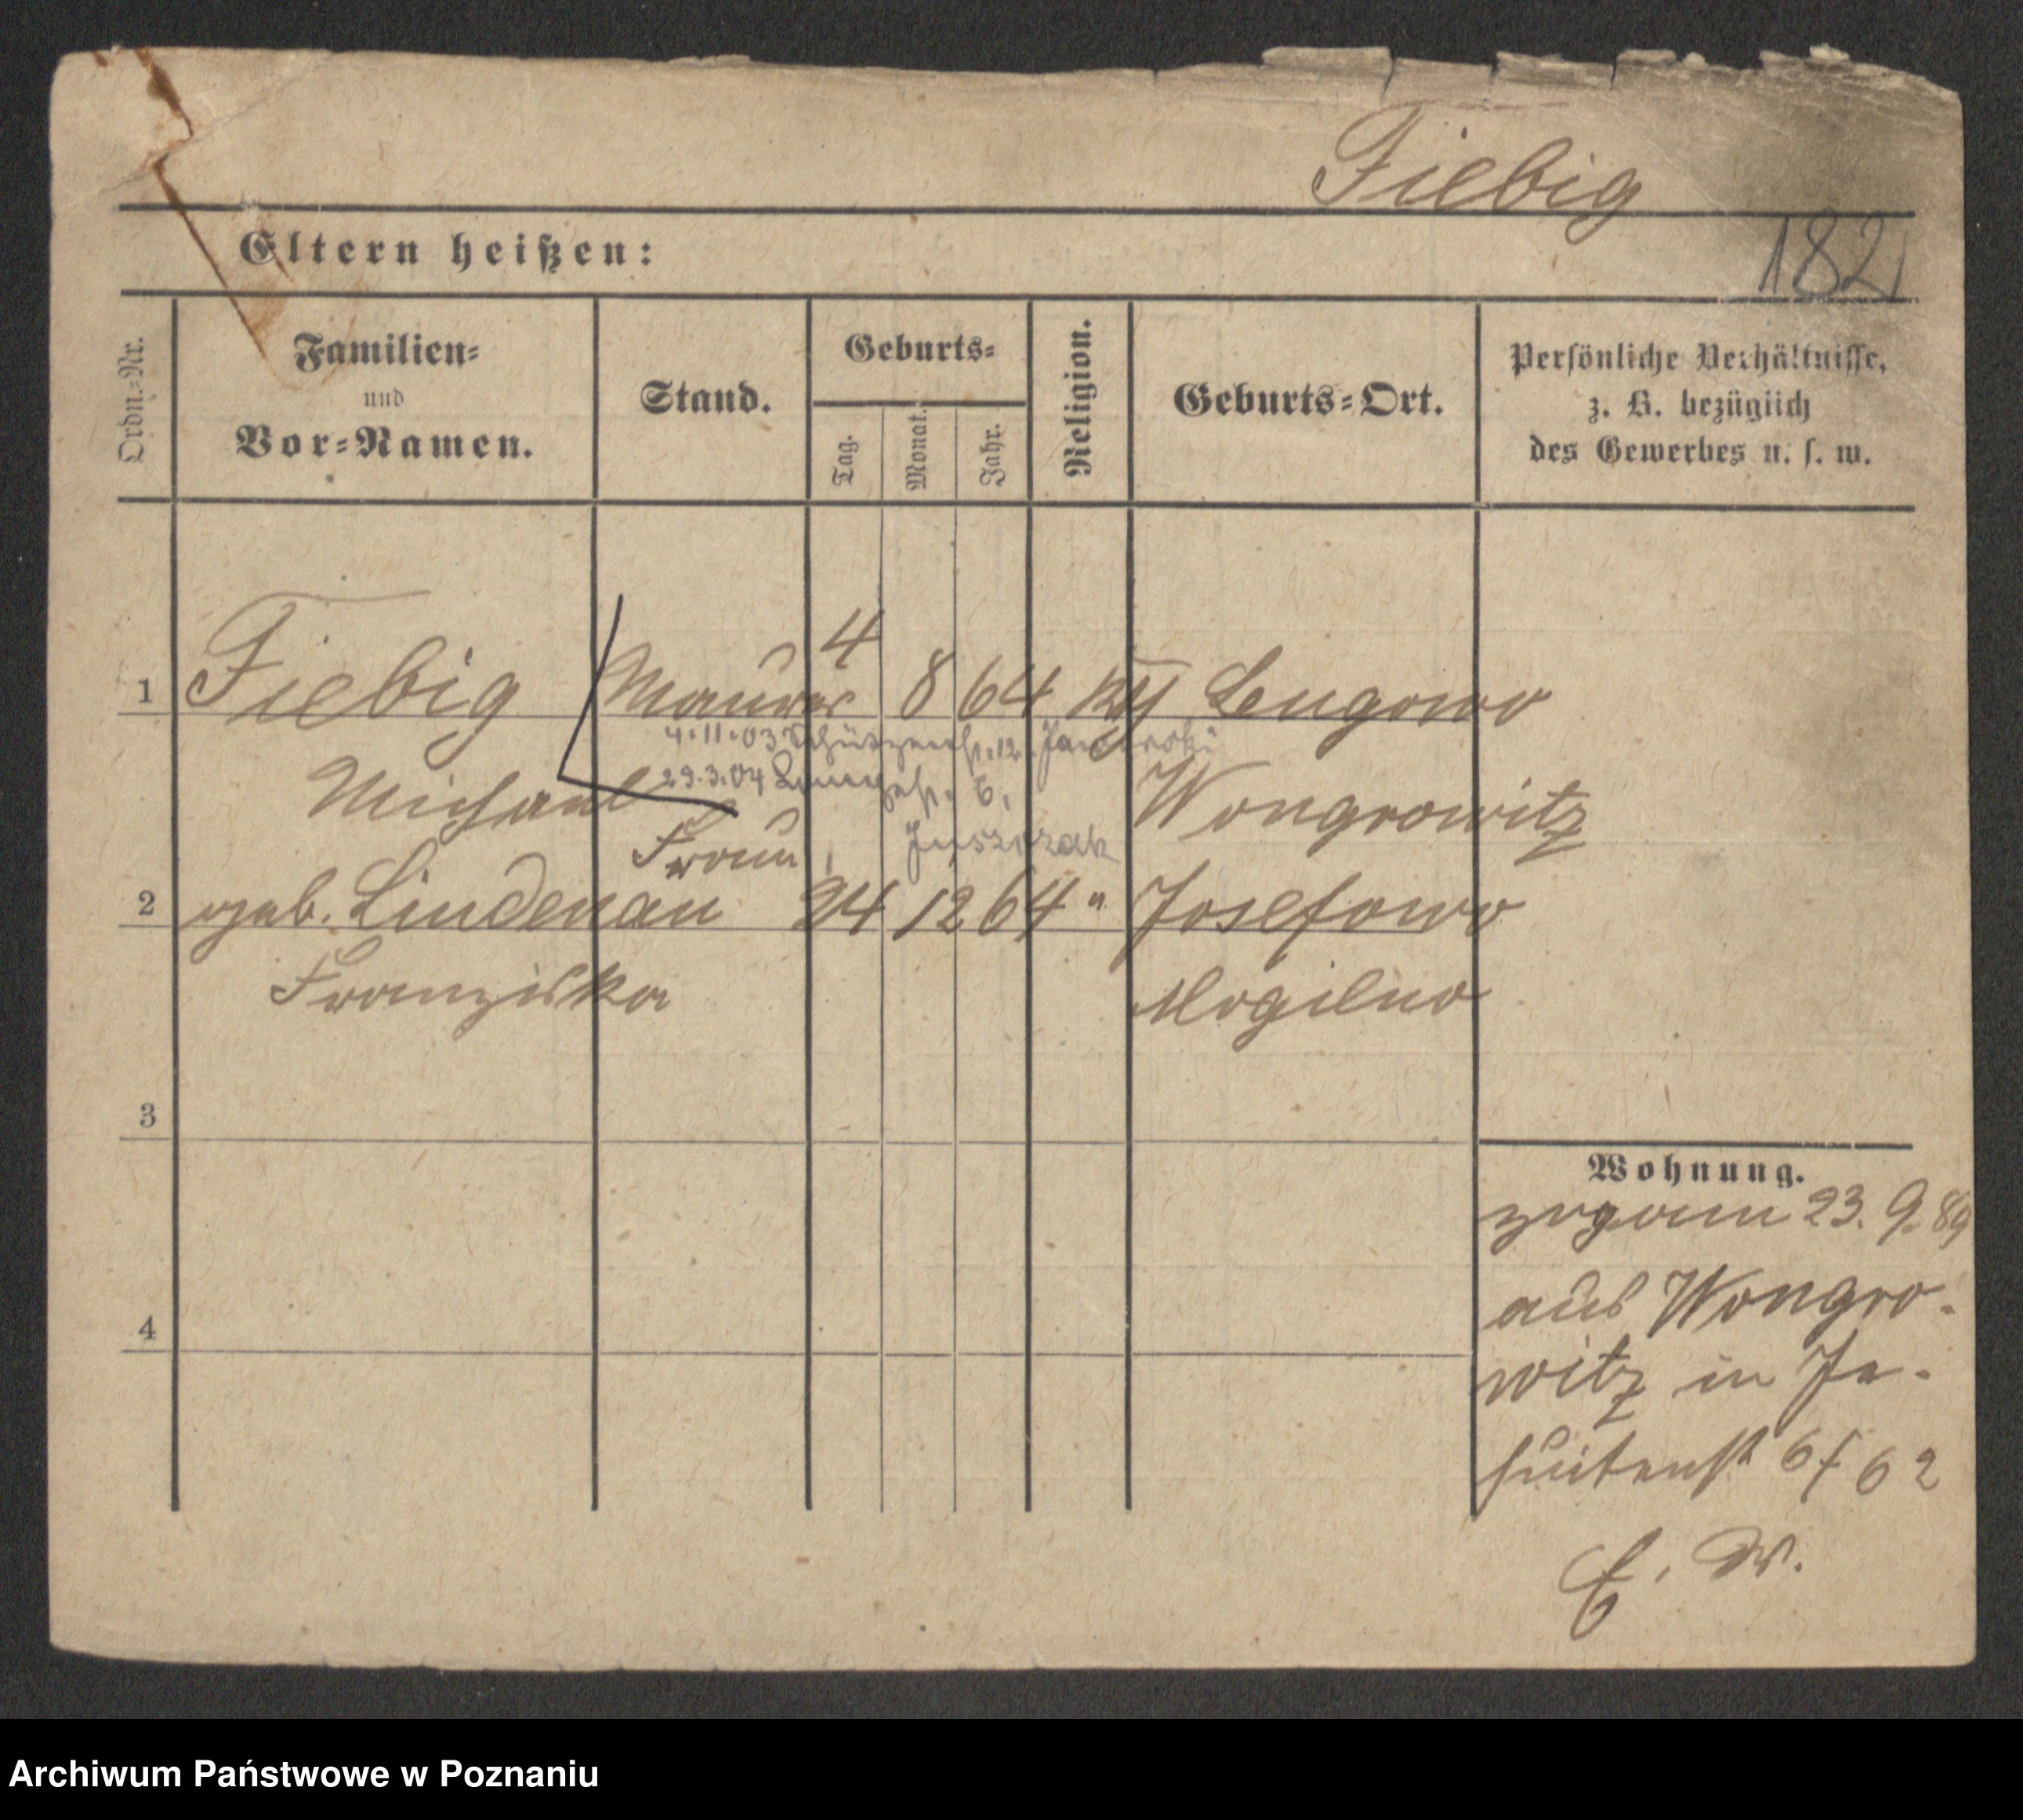 Fiebig
Eltern heißen:
182
Ordn.-Nr.
Familien-
und
Vor-Namen.
Stand.
Geburts-
Tag.
Monat.
Jahr.
Religion.
Geburts-Ort.
Persönliche Verhältnisse,
z. B. bezüglich
des Gewerbes u. s. w.
1 Fiebig Maurer 4 8 64 Lengowo
4.11.03 Schützenstr. 12.
Michael 29.3.04 6. Wongrowitz
Frau
2 geb. Lindenau 24 12 64 " Josefowo
Franziska Mogilno
3
4
Wohnung.
23. 9. 89
aus Wongro-
witz in Je-
suitenst
E. W.
Archiwum Państwowe w Poznaniu